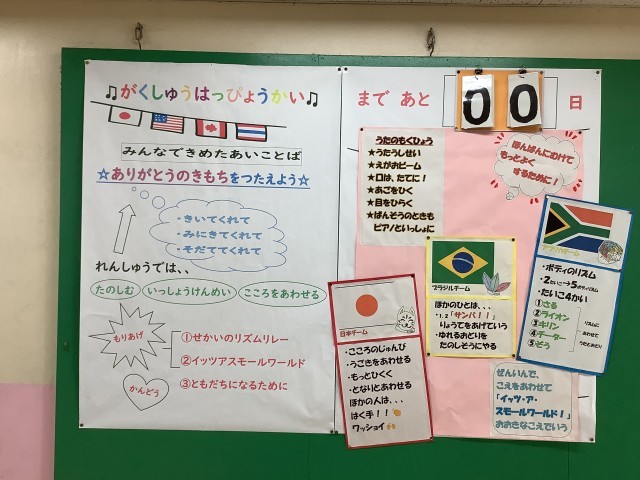 ♫がくしゅうはっぴょうかい♫
まで あと 00 日
みんなできめたあいことば
☆ありがとうのきもちをつたえよう☆
・きいてくれて
・みにきてくれて
・そだててくれて
れんしゅうでは、、
たのしむ いっしょうけんめい こころをあわせる
もりあげ
①せかいのリズムリレー
②イッツアスモールワールド
かんどう
③ともだちになるために
うたのもくひょう
★うたうしせい
★えがおビーム
★口は、たてに!
★あごをひく
★目をひらく
★ばんそうのときも
ピアノといっしょに
ほんばんにむけて
もっとよく
するために!
日本チーム
・こころのじゅんび
・うごきをあわせる
・もっとひくく
・となりとあわせる
ほかの人は、、、
はく手!!
ワッショイ
ブラジルチーム
ほかのひとは、、、
・1,2「サンバ!!」
りょうてをあげていう
・ゆれるおどりを
たのしそうにやる
・ボディのリズム
・たいこ4かい
①さる
②ライオン
③キリン
④チーター
⑤ぞう
リズムに
あわせて
うたとおどり
ぜんいんで、
こえをあわせて
「イッツ・ア・
スモールワールド!」
おおきなこえでいう